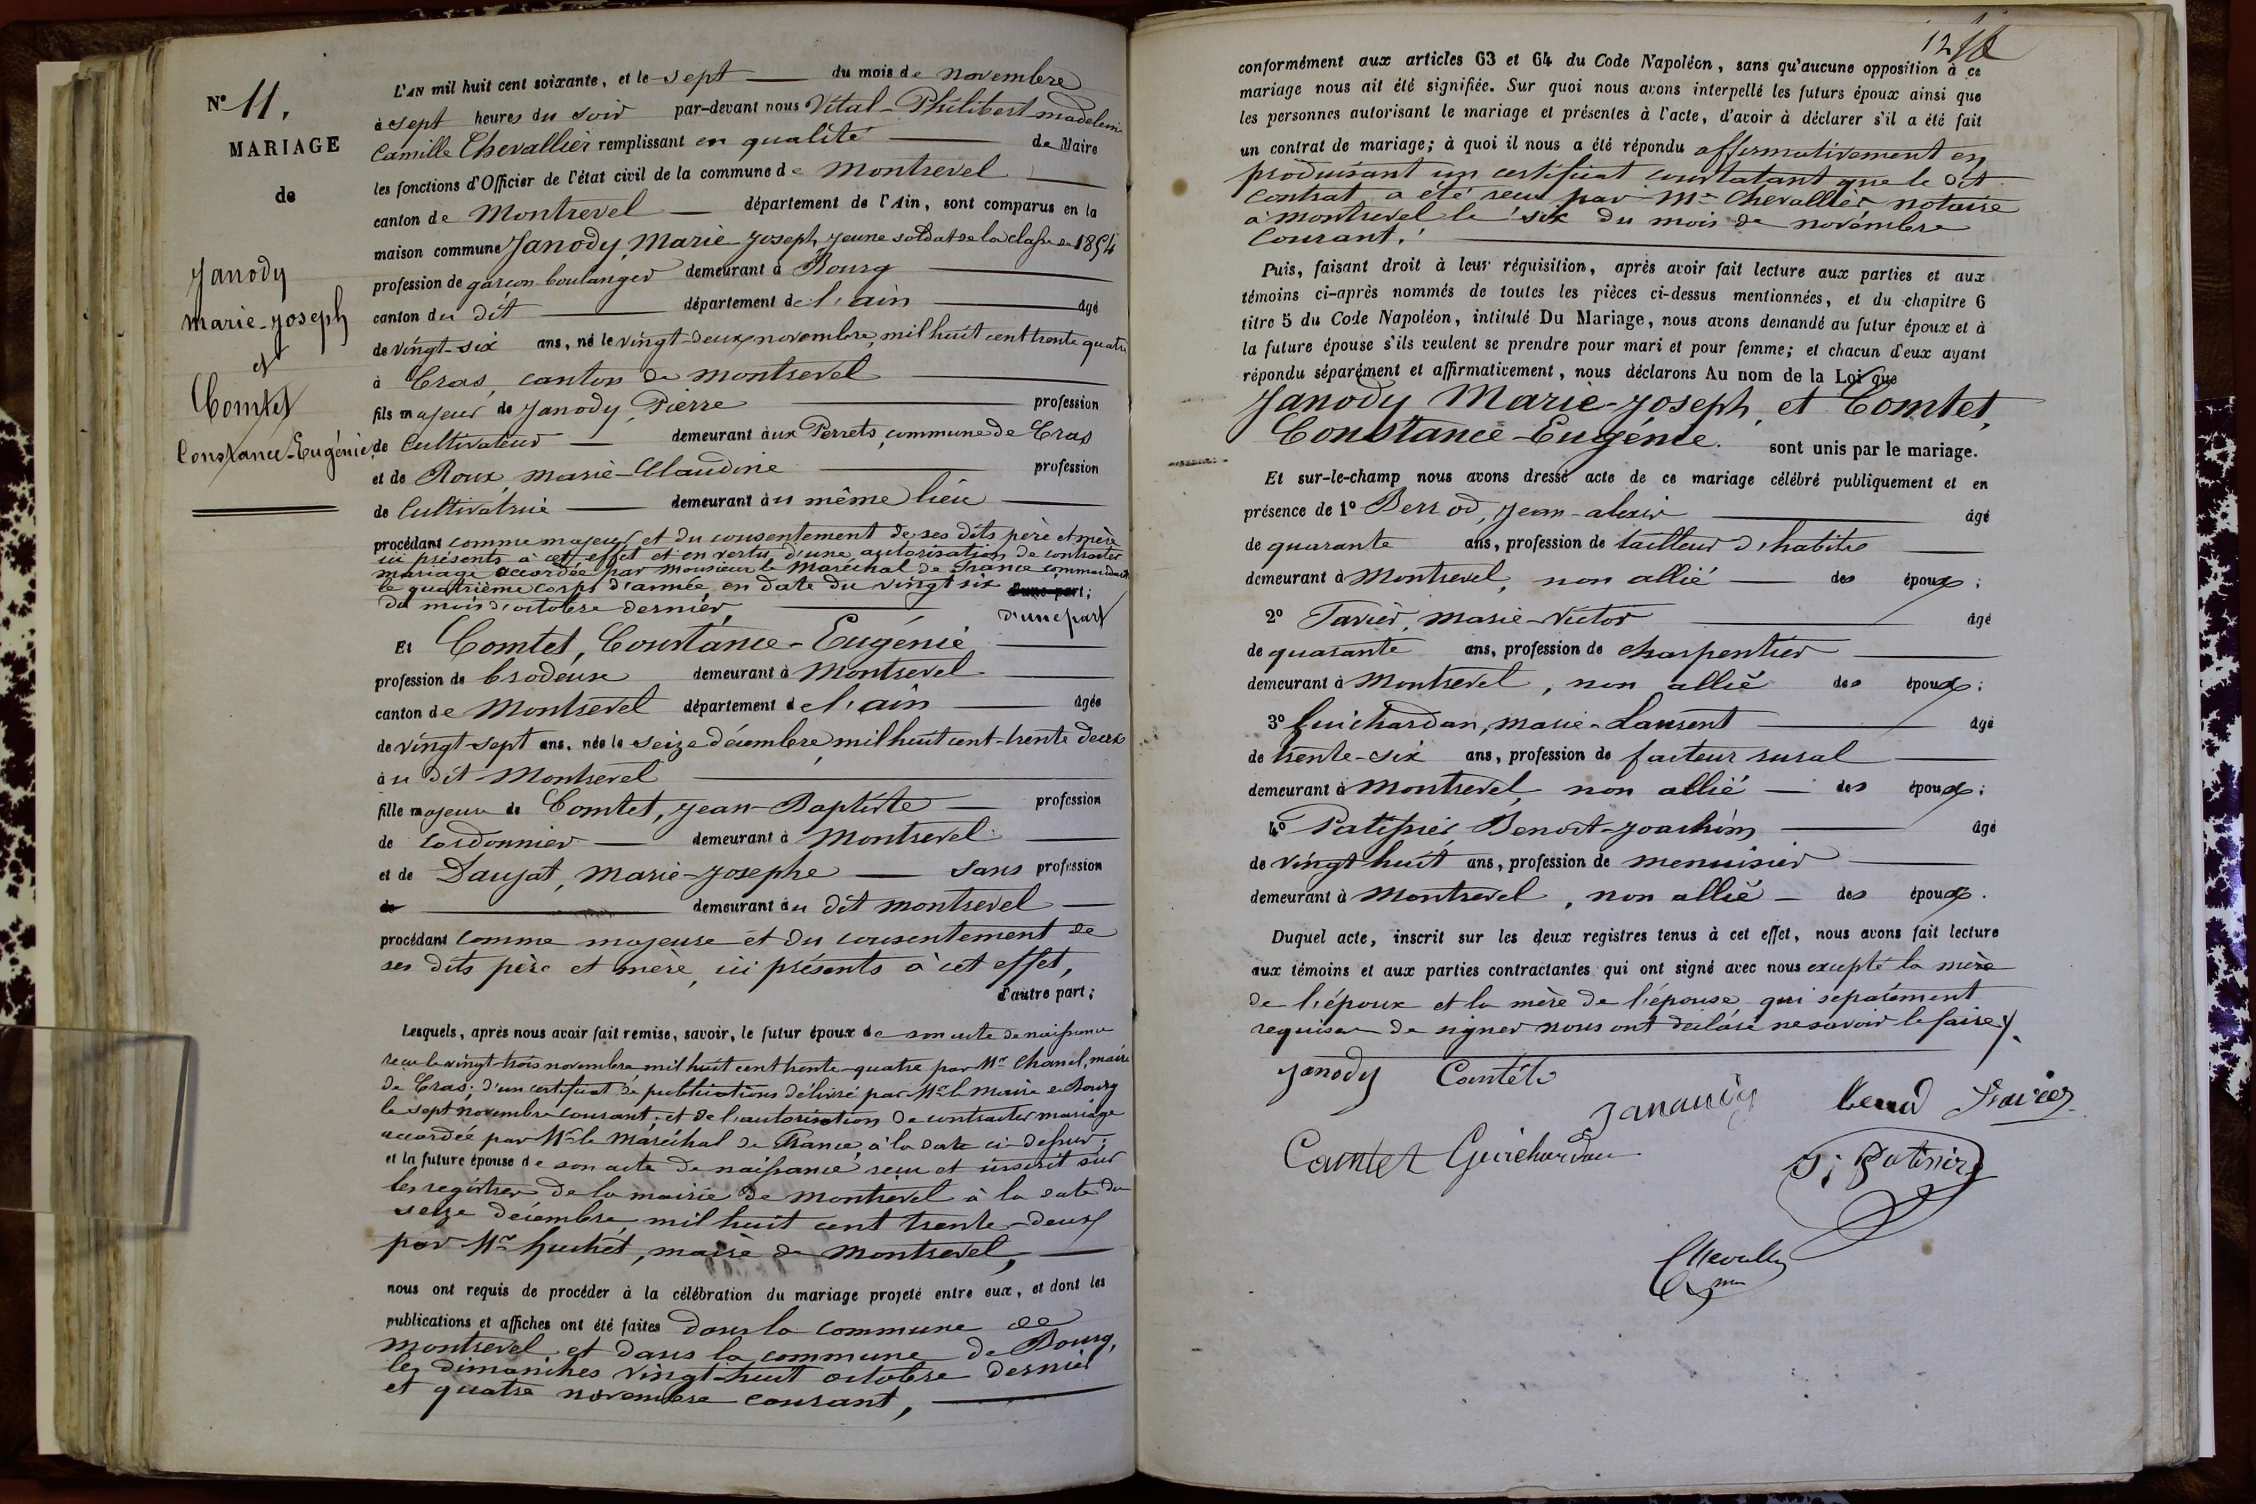 N° 11,
MARIAGE
de
Janody
Marie-Joseph
et
Comtet
Constance-Eugénie
L'AN mil huit cent soixante, et le sept du mois de novembre
à sept heures du soir par-devant nous Vital-Philibert-Madeleine
Camille Chevallier remplissant en qualité de Maire
les fonctions d'Officier de l'état civil de la commune de Montrevel
canton de Montrevel département de l'Ain, sont comparus en la
maison commune Janody, Marie-Joseph, jeune soldat de la classe de 1854
profession de garçon boulanger demeurant à Bourg
canton du dit département de l'ain âgé
de vingt-six ans, né le vingt-deux novembre mil huit cent trente quatre
à Cras, canton de Montrevel
fils majeur de Janody, Pierre profession
de Cultivateur demeurant aux Perrets, commune de Cras
et de Roux, Marie-Claudine profession
de Cultivatrice demeurant au même lieu
procédant comme majeur et du consentement de ses dits père et mère
ici présents à cet effet et en vertu d'une autorisation de contracter
mariage accordée par Monsieur le Maréchal de France commandant
le quatrième corps d'armée, en date du vingt six d'une part;
du mois d'octobre dernier, d'une part
Et Comtet, Constance-Eugénie
profession de brodeuse demeurant à Montrevel
canton de Montrevel département de l'ain âgée
de vingt-sept ans, née le seize décembre mil huit cent-trente deux
au dit Montrevel
fille majeure de Comtet, Jean-Baptiste profession
de cordonnier demeurant à Montrevel
et de Daujat, Marie-Josephe sans profession
de demeurant au dit Montrevel
procédant comme majeure et du consentement de
ses dits père et mère, ici présents à cet effet,
d'autre part;
Lesquels, après nous avoir fait remise, savoir, le futur époux de son acte de naissance
reçu le vingt-trois novembre mil huit cent trente-quatre par Mr Chanel, maire
de Cras; d'un certificat de publications délivré par Mr le Maire de Bourg
le sept novembre courant; et de l'autorisation de contracter mariage
accordée par Mr le Maréchal de France, à la date ci-dessus;
et la future épouse de son acte de naissance, reçu et inscrit sur
les registres de la mairie de Montrevel à la date du
seize décembre mil huit cent trente-deux
par Mr Guchet, maire de Montrevel,
nous ont requis de procéder à la célébration du mariage projeté entre eux, et dont les
publications et affiches ont été faites dans la commune de
Montrevel et dans la commune de Bourg,
les dimanches vingt-huit octobre dernier
et quatre novembre courant,
12
conformément aux articles 63 et 64 du Code Napoléon, sans qu'aucune opposition à ce
mariage nous ait été signifiée. Sur quoi nous avons interpellé les futurs époux ainsi que
les personnes autorisant le mariage et présentes à l'acte, d'avoir à déclarer s'il a été fait
un contrat de mariage; à quoi il nous a été répondu affirmativement en
produisant un certificat constatant que le dit
contrat a été reçu par Mr Chevallier notaire
à Montrevel le six du mois de novembre
courant.
Puis, faisant droit à leur réquisition, après avoir fait lecture aux parties et aux
témoins ci-après nommés de toutes les pièces ci-dessus mentionnées, et du chapitre 6
titre 5 du Code Napoléon, intitulé Du Mariage, nous avons demandé au futur époux et à
la future épouse s'ils veulent se prendre pour mari et pour femme; et chacun d'eux ayant
répondu séparément et affirmativement, nous déclarons Au nom de la Loi que
Janody Marie-Joseph, et Comtet,
Constance-Eugénie sont unis par le mariage.
Et sur-le-champ nous avons dressé acte de ce mariage célébré publiquement et en
présence de 1° Berrod, Jean-Alexis âgé
de quarante ans, profession de tailleur d'habits
demeurant à Montrevel, non allié des époux;
2° Tavier, Marie-Victor âgé
de quarante ans, profession de charpentier
demeurant à Montrevel, non allié des époux;
3° Guichardan, Marie-Laurent âgé
de trente-six ans, profession de facteur rural
demeurant à Montrevel, non allié des époux;
4° Patissier Benoit-Joachim âgé
de vingt huit ans, profession de menuisier
demeurant à Montrevel, non allié des époux.
Duquel acte, inscrit sur les deux registres tenus à cet effet, nous avons fait lecture
aux témoins et aux parties contractantes qui ont signé avec nous excepté la mère
de l'époux et la mère de l'épouse, qui séparément
requises de signer nous ont déclaré ne savoir le faire.
Janody Comtet
Janaudy Tavier
Comtet Guichardan